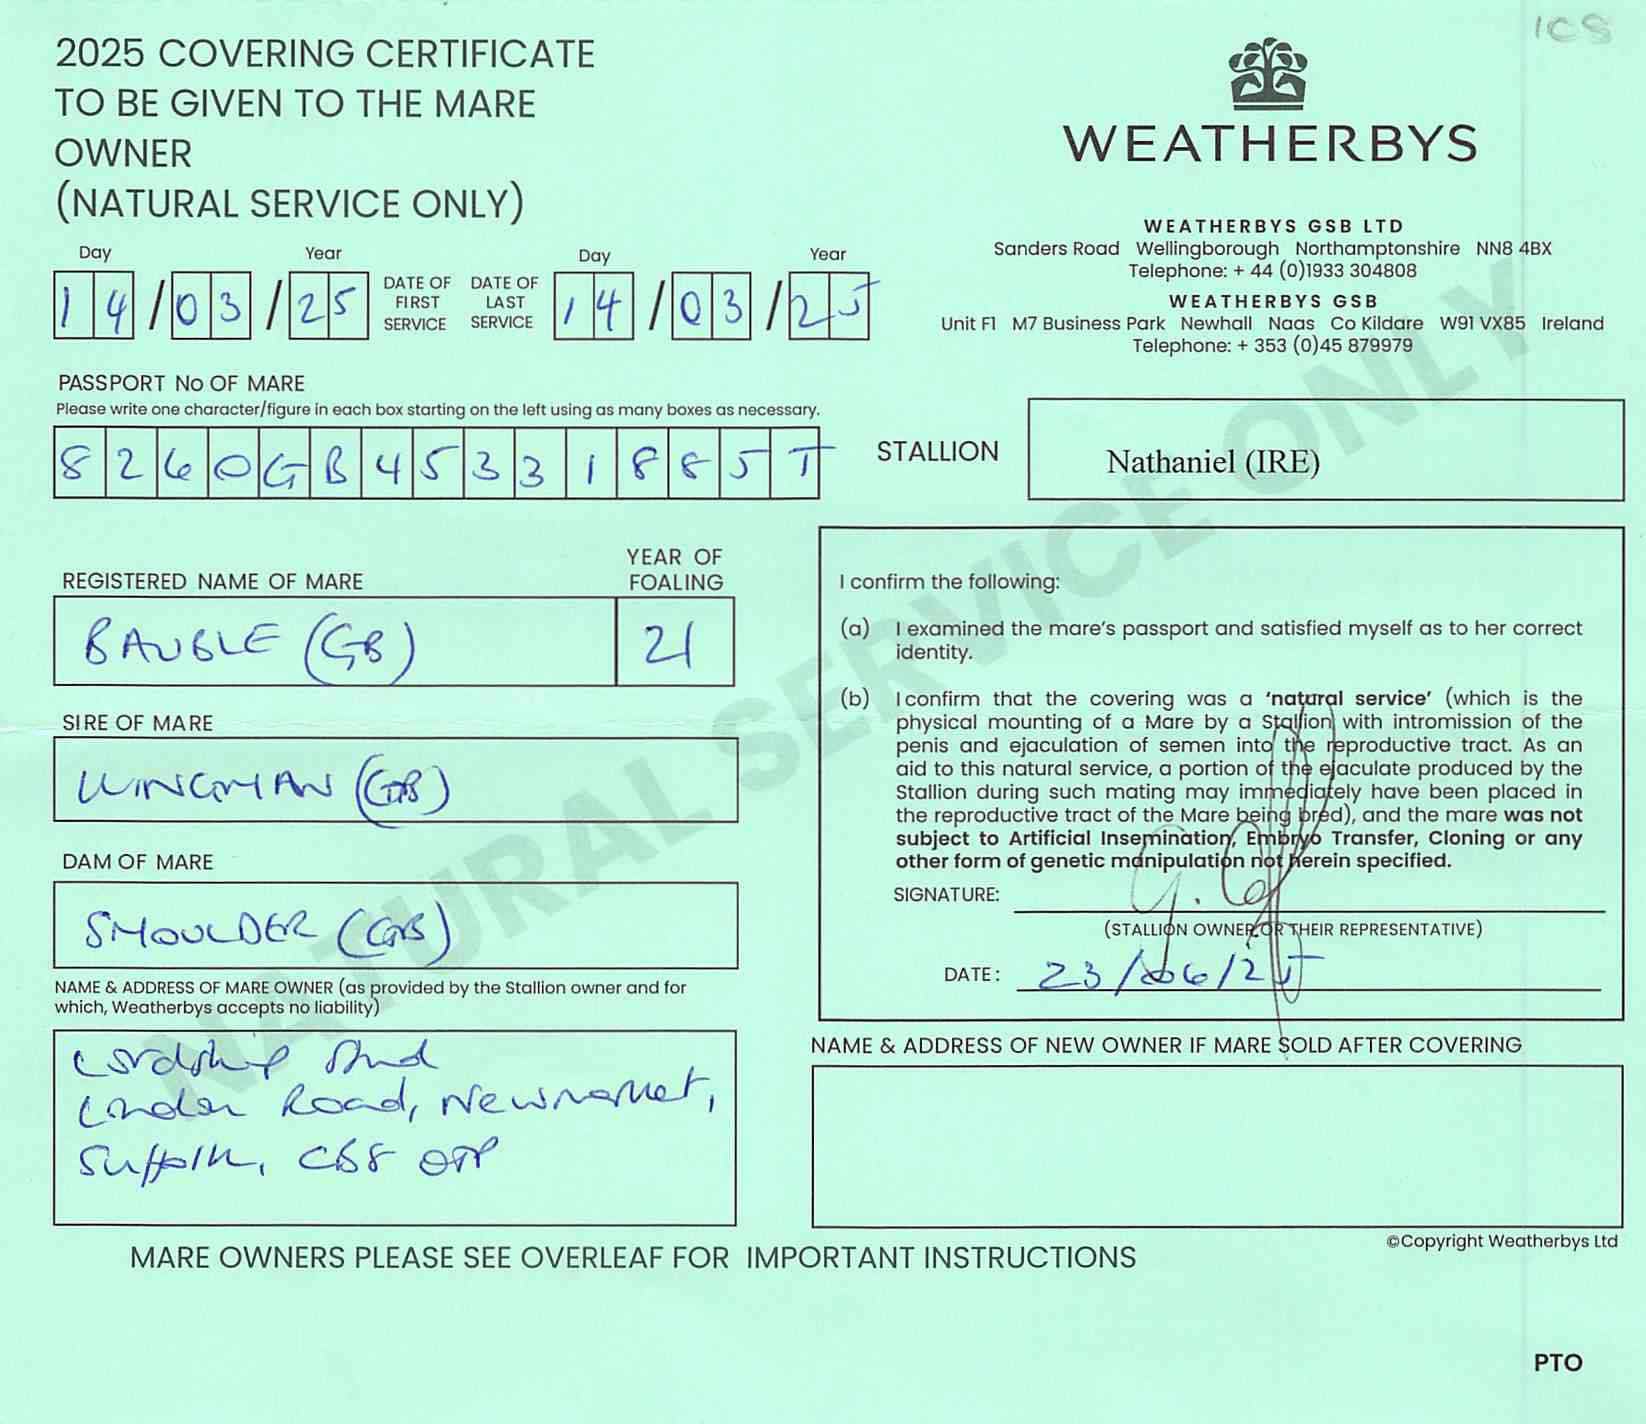 1CS
2025 COVERING CERTIFICATE
TO BE GIVEN TO THE MARE
OWNER
(NATURAL SERVICE ONLY)
WEATHERBYS
WEATHERBYS GSB LTD
Sanders Road Wellingborough Northamptonshire NN8 4BX
Telephone: + 44 (0)1933 304808
WEATHERBYS GSB
Unit F1 M7 Business Park Newhall Naas Co Kildare W91 VX85 Ireland
Telephone: + 353 (0)45 879979
Day Year Day Year
14/03/25 DATE OF FIRST SERVICE DATE OF LAST SERVICE 14/03/25
PASSPORT No OF MARE
Please write one character/figure in each box starting on the left using as many boxes as necessary.
8260GB45331885T
STALLION Nathaniel (IRE)
REGISTERED NAME OF MARE YEAR OF FOALING
BAUBLE (GB) 21
SIRE OF MARE
WINGMAN (GB)
DAM OF MARE
SMOULDER (GB)
NAME & ADDRESS OF MARE OWNER (as provided by the Stallion owner and for
which, Weatherbys accepts no liability)
Lordship Stud
London Road, Newmarket,
Suffolk, CB8 0TP
I confirm the following:
(a) I examined the mare's passport and satisfied myself as to her correct
identity.
(b) I confirm that the covering was a 'natural service' (which is the
physical mounting of a Mare by a Stallion with intromission of the
penis and ejaculation of semen into the reproductive tract. As an
aid to this natural service, a portion of the ejaculate produced by the
Stallion during such mating may immediately have been placed in
the reproductive tract of the Mare being bred), and the mare was not
subject to Artificial Insemination, Embryo Transfer, Cloning or any
other form of genetic manipulation not herein specified.
SIGNATURE:
(STALLION OWNER OR THEIR REPRESENTATIVE)
DATE: 23/06/25
NAME & ADDRESS OF NEW OWNER IF MARE SOLD AFTER COVERING
©Copyright Weatherbys Ltd
MARE OWNERS PLEASE SEE OVERLEAF FOR IMPORTANT INSTRUCTIONS
PTO
NATURAL SERVICE ONLY